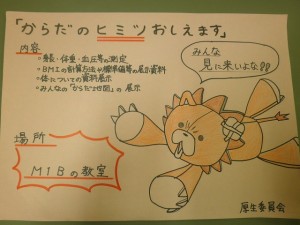 「からだのヒミツおしえます」
内容
・身長・体重・血圧等の測定
・BMIの計算方法や標準値等の展示資料
・体についての資料展示
・みんなの「からだつせ間」の展示
みんな
見に来いよな!!
場所
M1Bの教室
厚生委員会